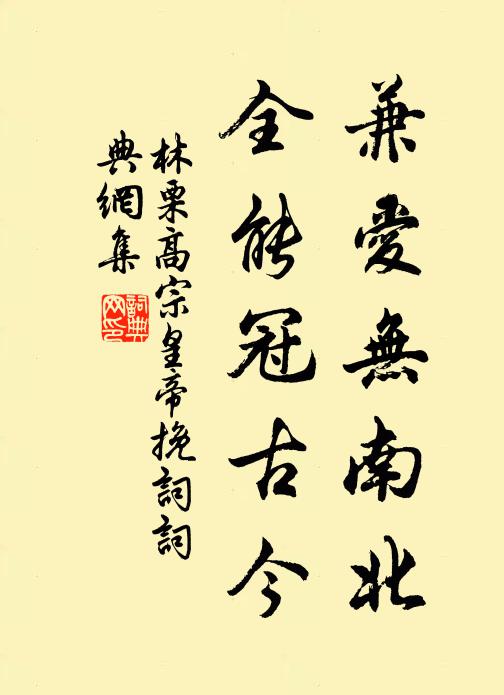 兼愛無南北
全能冠古今
林栗高宗皇帝挽詞詞
典網集
詞典網印